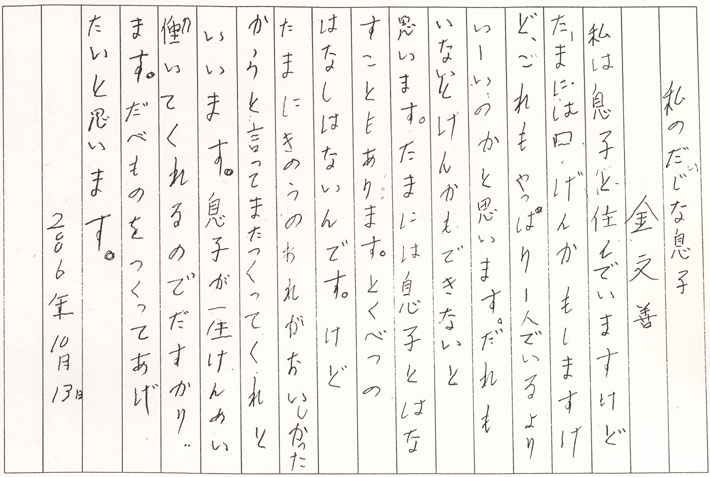 私のだじな息子
金文善
私は息子と住んでいますけど
たまには口げんかもしますけ
ど、これもやっぱり一人でいるより
いーいのかと思います。だれも
いないとけんかもできないと
思います。たまには息子とはな
すこともあります。とくべつの
はなしはないんです。けど
たまにきのうのおれがおいしかった
からと言ってまたつくってくれと
いいます。息子が一生けんめい
働いてくれるのでだすかり
ます。だべものをつくってあげ
たいと思います。
2006年10月13日